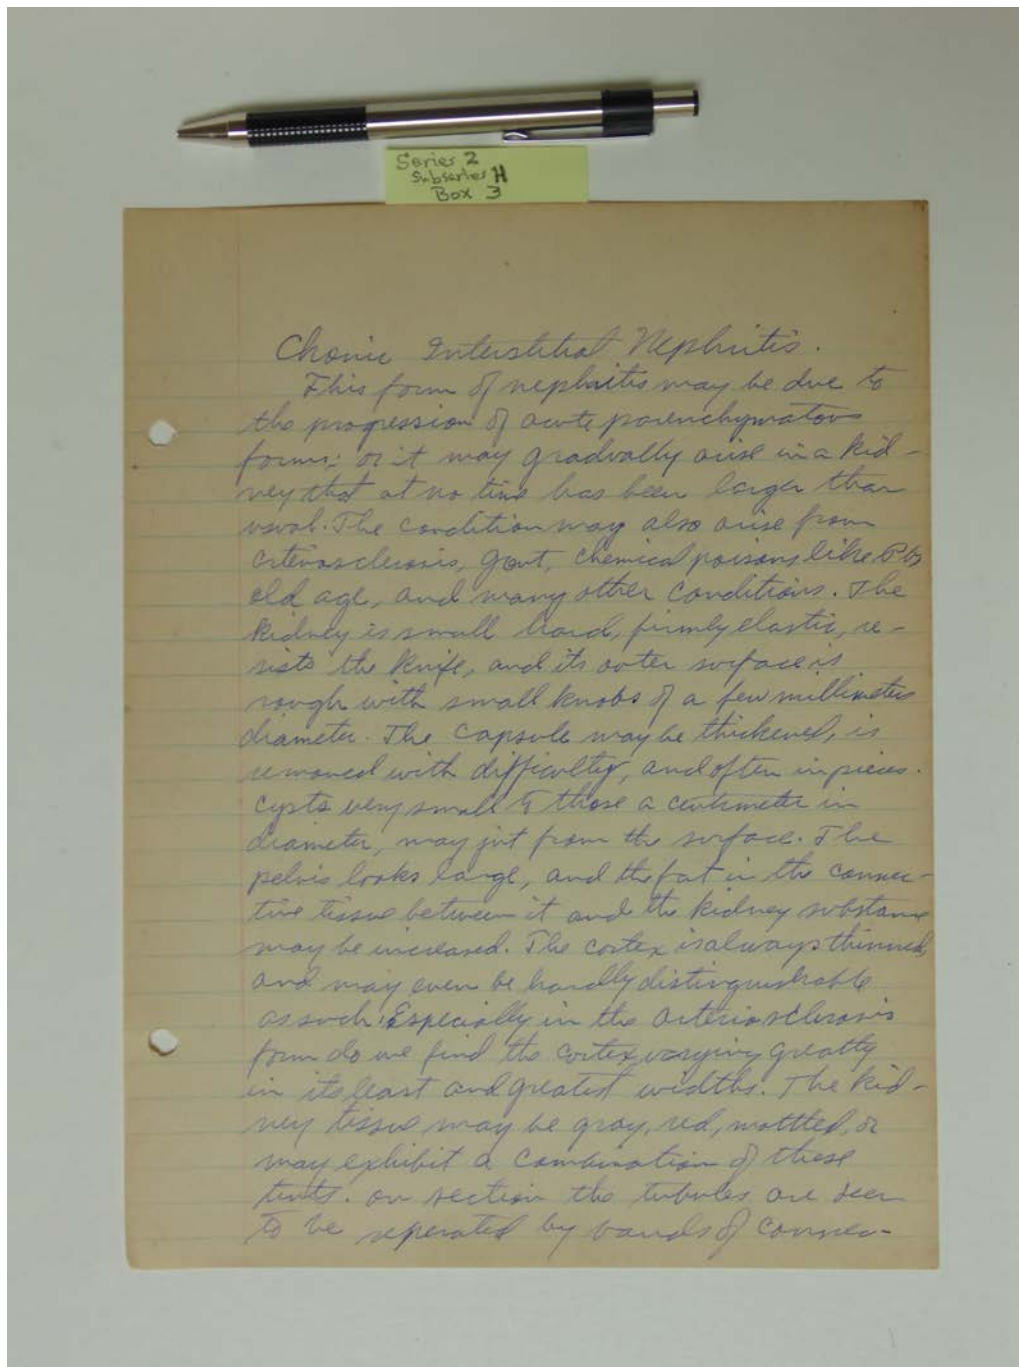 Series 2
Subseries H
Box 3
Chonic Interstitial Nephritis.
This form of nephritis may be due to
the progression of acute parenchymatous
forms; or it may gradually arise in a kid-
ney that at no time has been larger than
usual. The condition may also arise from
arteriosclerosis, gout, chemical poisons like Pb,
old age, and many other conditions. The
kidney is small hard, firmly elastic, re-
sists the knife, and its outer surface is
rough with small knobs of a few millimeters
diameter. The capsule may be thickened, is
removed with difficulty, and often in pieces.
Cysts very small to those a centimeter in
diameter, may jut from the surface. The
pelvis looks large, and the fat in the connec-
tive tissue between it and the kidney substance
may be increased. The cortex is always thinned,
and may even be hardly distinguishable
as such. Especially in the arteriosclerosis
form do we find the cortex varying greatly
in its least and greatest widths. The kid-
ney tissue may be gray, red, mottled, or
may exhibit a combination of these
tints. On section the tubules are seen
to be seperated by bands of connec-